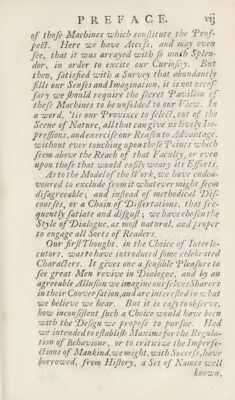 PREFACE. vij
of thoſe Machines which conſtitute the Proſ-
pect. Here we have Acceſs, and may even
ſee, that it was arrayed with ſo much Splen-
dor, in order to excite our Curioſity. But
then, ſatisfied with a Survey that abundantly
fills our Senſes and Imagination, it is not neceſ-
ſary we ſhould require the ſecret Pavilion of
theſe Machines to be unfolded to our View. In
a word, 'tis our Province to ſelect, out of the
Scene of Nature, all that can give us lively Im-
preſſions, and exerciſe our Reaſon to Advantage,
without ever touching upon thoſe Points which
ſeem above the Reach of that Faculty, or even
upon thoſe that would eaſily weary its Efforts.
As to the Model of the Work, we have endea-
voured to exclude from it whatever might ſeem
diſagreeable; and inſtead of methodical Diſ-
courſes, or a Chain of Diſſertations, that fre-
quently ſatiate and diſguſt, we have choſen the
Style of Dialogue, as moſt natural, and proper
to engage all Sorts of Readers.
Our firſt Thought, in the Choice of Interlo-
cutors, was to have introduced ſome celebrated
Characters. It gives one a ſenſible Pleaſure to
ſee great Men revive in Dialogue, and by an
agreeable Alluſion we imagine ourſelves Sharers
in their Converſation, and are intereſted in what
we believe we hear. But it is eaſy to obſerve,
how inconſiſtent ſuch a Choice would have been
with the Deſign we propoſe to purſue. Had
we intended to eſtabliſh Maxims for the Regula-
tion of Behaviour, or to criticize the Imperfe-
ctions of Mankind, we might, with Succeſs, have
borrowed, from Hiſtory, a Set of Names well
known,